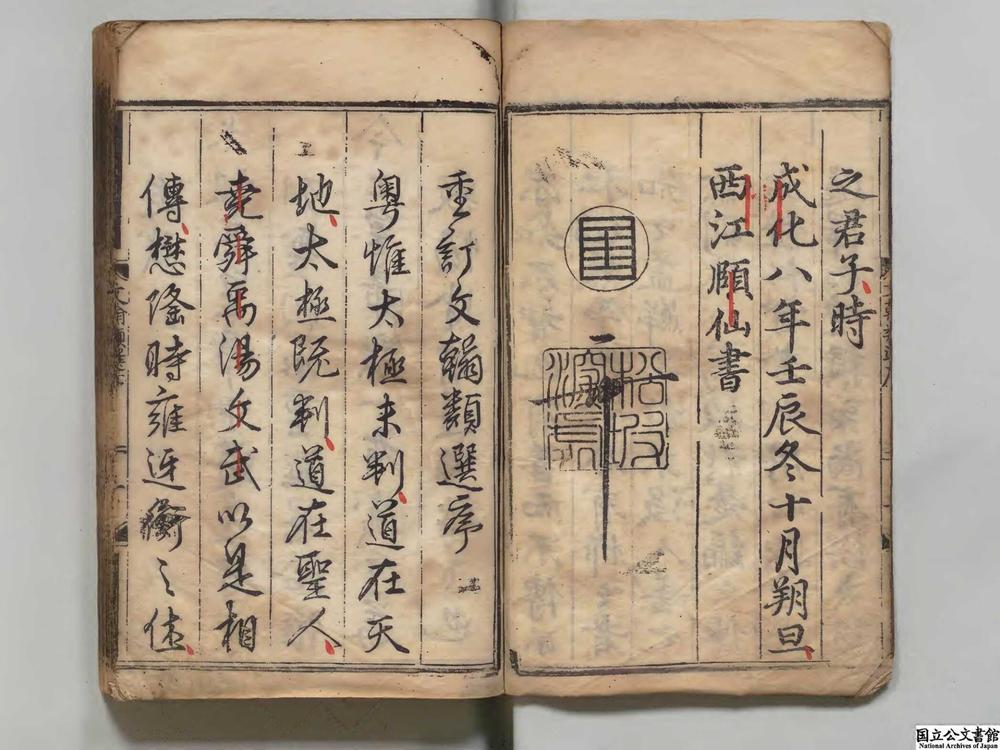 之君子時
成化八年壬辰冬十月朔旦
西江頤仙書
重訂文翰類選序
粵惟太極未判道在天
地太極既判道在聖人
堯舜禹湯文武以是相
傳懋隆時雍迓衡之休
国立公文書館
National Archives of Japan